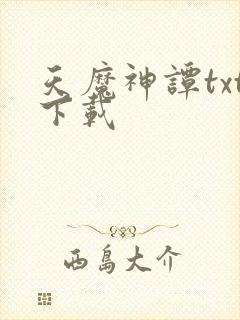 天魔神譚txt
下載
西島大介